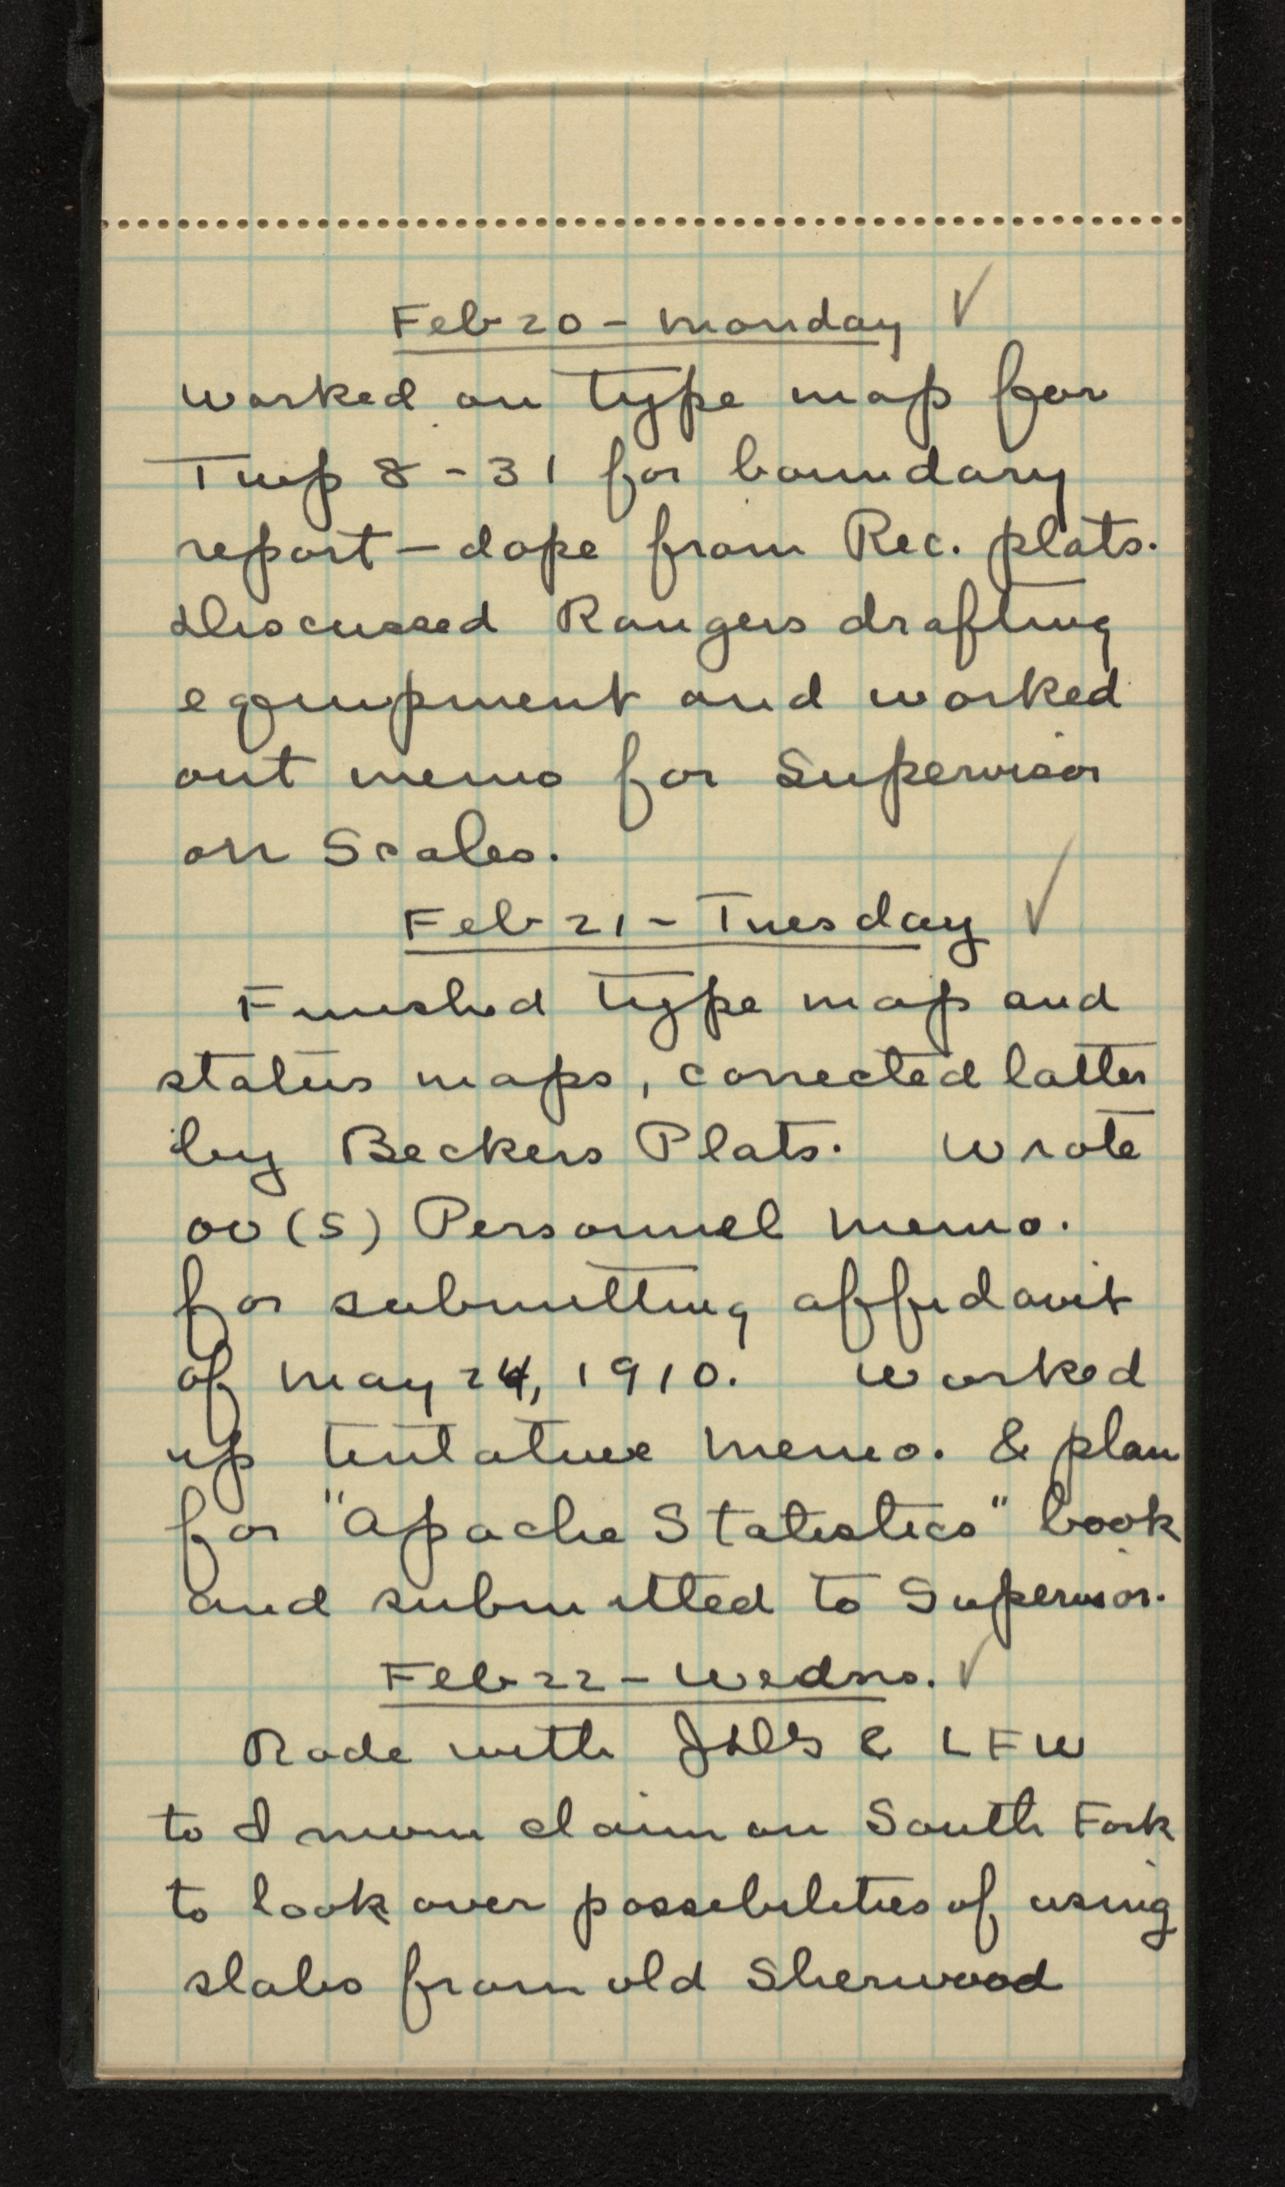 Feb 20 - Monday ✓
Worked on type map for
Twp 8-31 for boundary
report - dope from Rec. plats.
Discussed Rangers drafting
equipment and worked
out memo for Supervisor
on Scales.
Feb 21 - Tuesday ✓
Finished type map and
status maps, corrected latter
by Beckers Plats. Wrote
oo (S) Personnel memo.
for submitting affidavit
of May 24, 1910. Worked
up tentative memo. & plan
for "Apache Statistics" book
and submitted to Supervisor.
Feb 22 - Wedns. ✓
Rode with & LFW
to claim on South Fork
to look over possibilities of using
slabs from old Sherwood